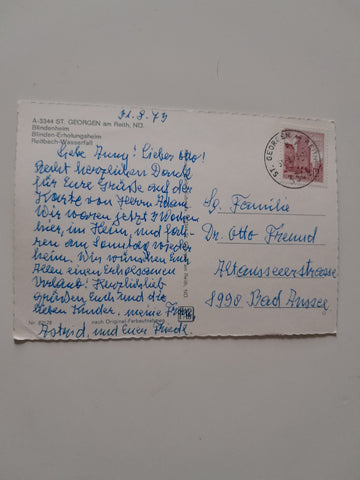 31.8.73
A-3344 ST. GEORGEN am Reith, NÖ.
Blindenheim
Blinden-Erholungsheim
Reitbach-Wasserfall
Liebe Inny! Lieber Otto!
Recht herzlichen Dank
für Eure Grüße auf der
Karte von Herrn Adam.
Wir waren jetzt 3 Wochen
hier im Heim und
fahren am Sonntag wieder
heim. Wir wünschen Euch
Allen einen Erholsamen
Urlaub! Herzlichst
grüßen Euch und die
lieben Kinder, meine Frau,
Astrid, und Euer Friedl.
Nr.
nach Original-Farbaufnahmen
am Reith, NÖ
ST. GEORGEN
Sg. Familie
Dr. Otto Freund
Altausseerstrasse
8990 Bad Aussee